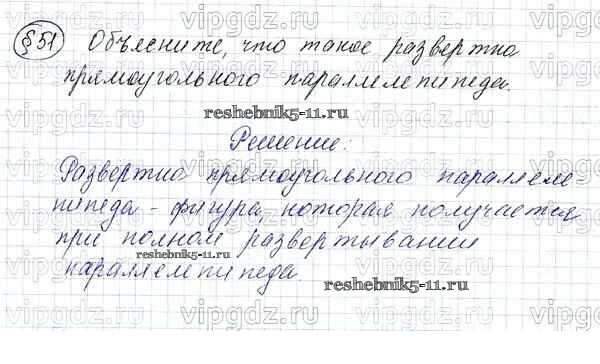 §51 Объясните, что такое развертка
прямоугольного параллелепипеда.
reshebnik5-11.ru
Решение:
Развертка прямоугольного параллеле
пипеда - фигура, которая получается
при полном развертывании
reshebnik5-11.ru
параллелепипеда.
reshebnik5-11.ru
vipgdz.ru